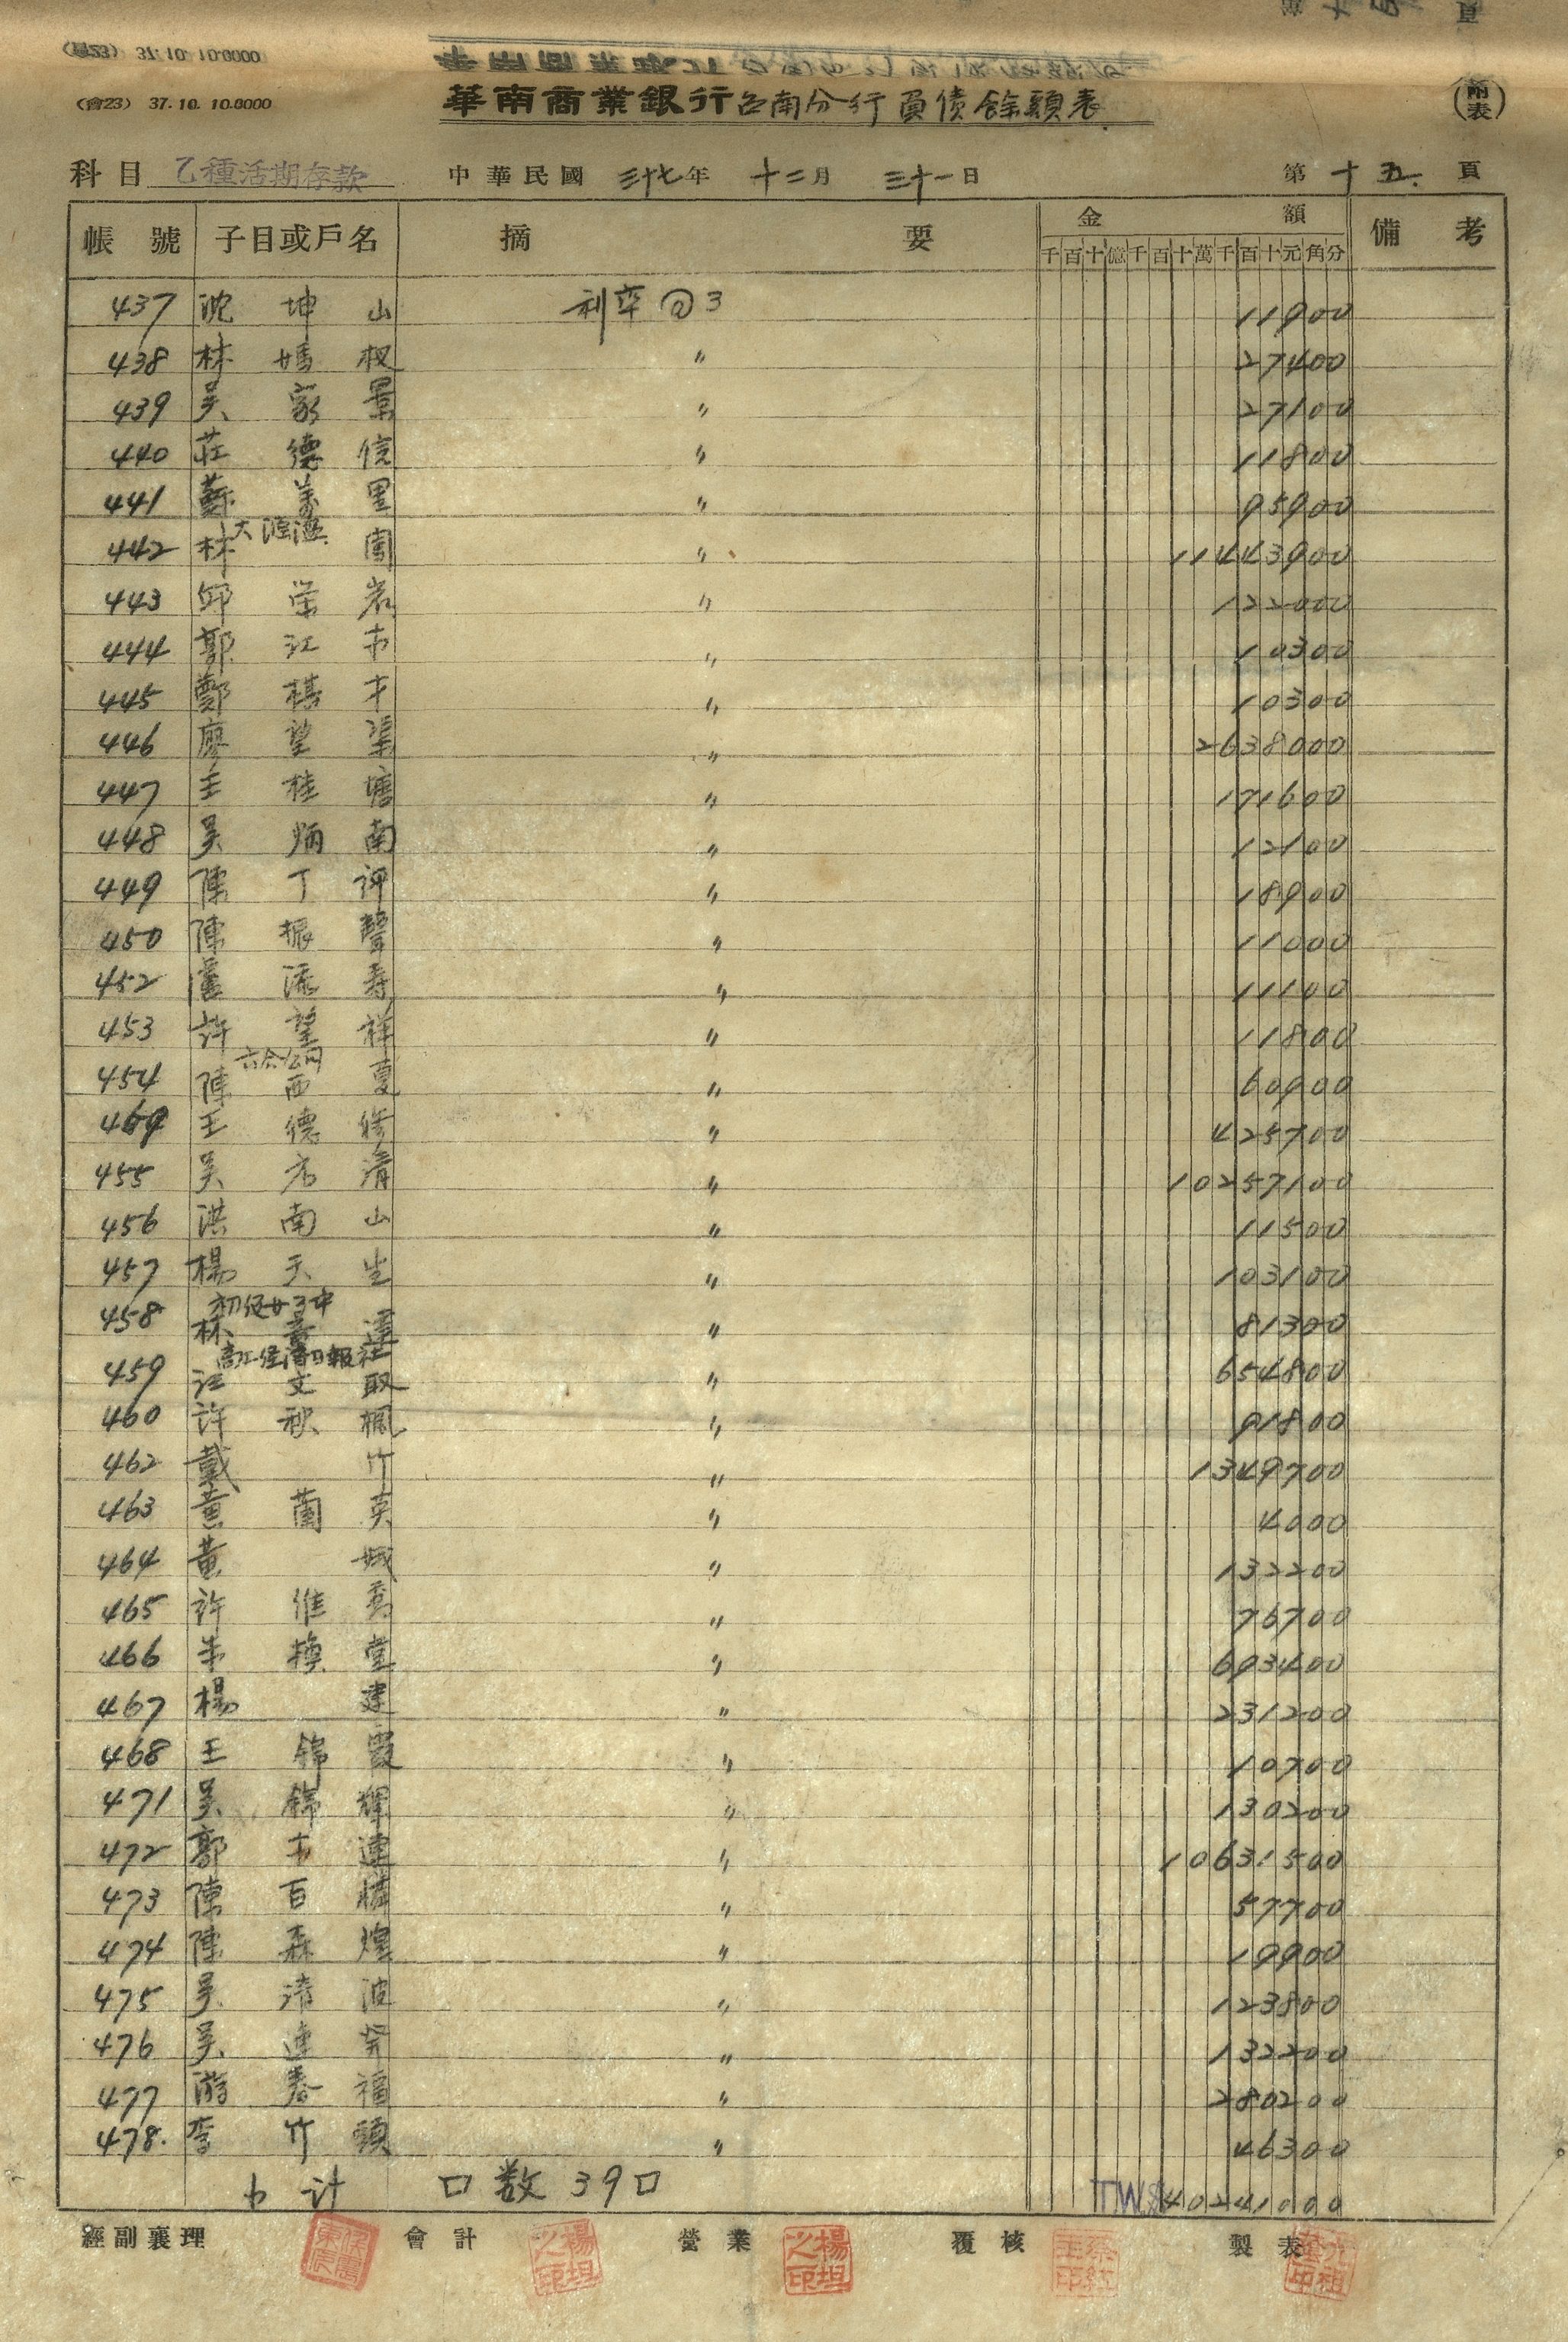 (會23) 37.10.10.6000
(會23) 37.10.10.6000
華南商業銀行台南分行負債餘額表
(附表)
科目 乙種活期存款 中華民國 三十七年 十二月 三十一日 第十五頁
帳號 子目或戶名 摘要 金額 備考
千百十億千百十萬千百十元角分
437 沈坤山 利率@3 11900
438 林媽权 〃 27400
439 吳家景 〃 27100
440 莊德信 〃 11800
441 蘇萬里 〃 95900
442 林園 〃 11443900
443 邱榮岩 〃 122000
444 郭江市 〃 10300
445 鄭棋才 〃 10300
446 廖望渠 〃 2638000
447 王桂塘 〃 171600
448 吳炳南 〃 12100
449 陳丁評 〃 18900
450 陳振聲 〃 11000
452 盧添壽 〃 11100
453 許望祥 〃 11800
六合公司
454 陳西夏 〃 60900
469 王德修 〃 425700
455 吳方清 〃 10257100
456 洪南山 〃 11500
457 楊天生 〃 103100
458 林達 〃 81300
459 江文取 〃 654800
460 許秋楓 〃 91800
462 戴竹 〃 1349700
463 黃蘭英 〃 4000
464 黃城 〃 132200
465 許維喬 〃 76700
466 朱換堂 〃 693400
467 楊建 〃 231200
468 王錦霞 〃 10700
471 吳錦輝 〃 130200
472 郭市連 〃 10631500
473 陳百 〃 57700
474 陳森煌 〃 19900
475 吳清波 〃 123800
476 吳連癸 〃 132200
477 游春福 〃 280200
478. 李竹頭 〃 46300
小計 口数39口 TW$40241000
經副襄理 會計 營業 覆核 製表
楊坦之印 楊坦之印